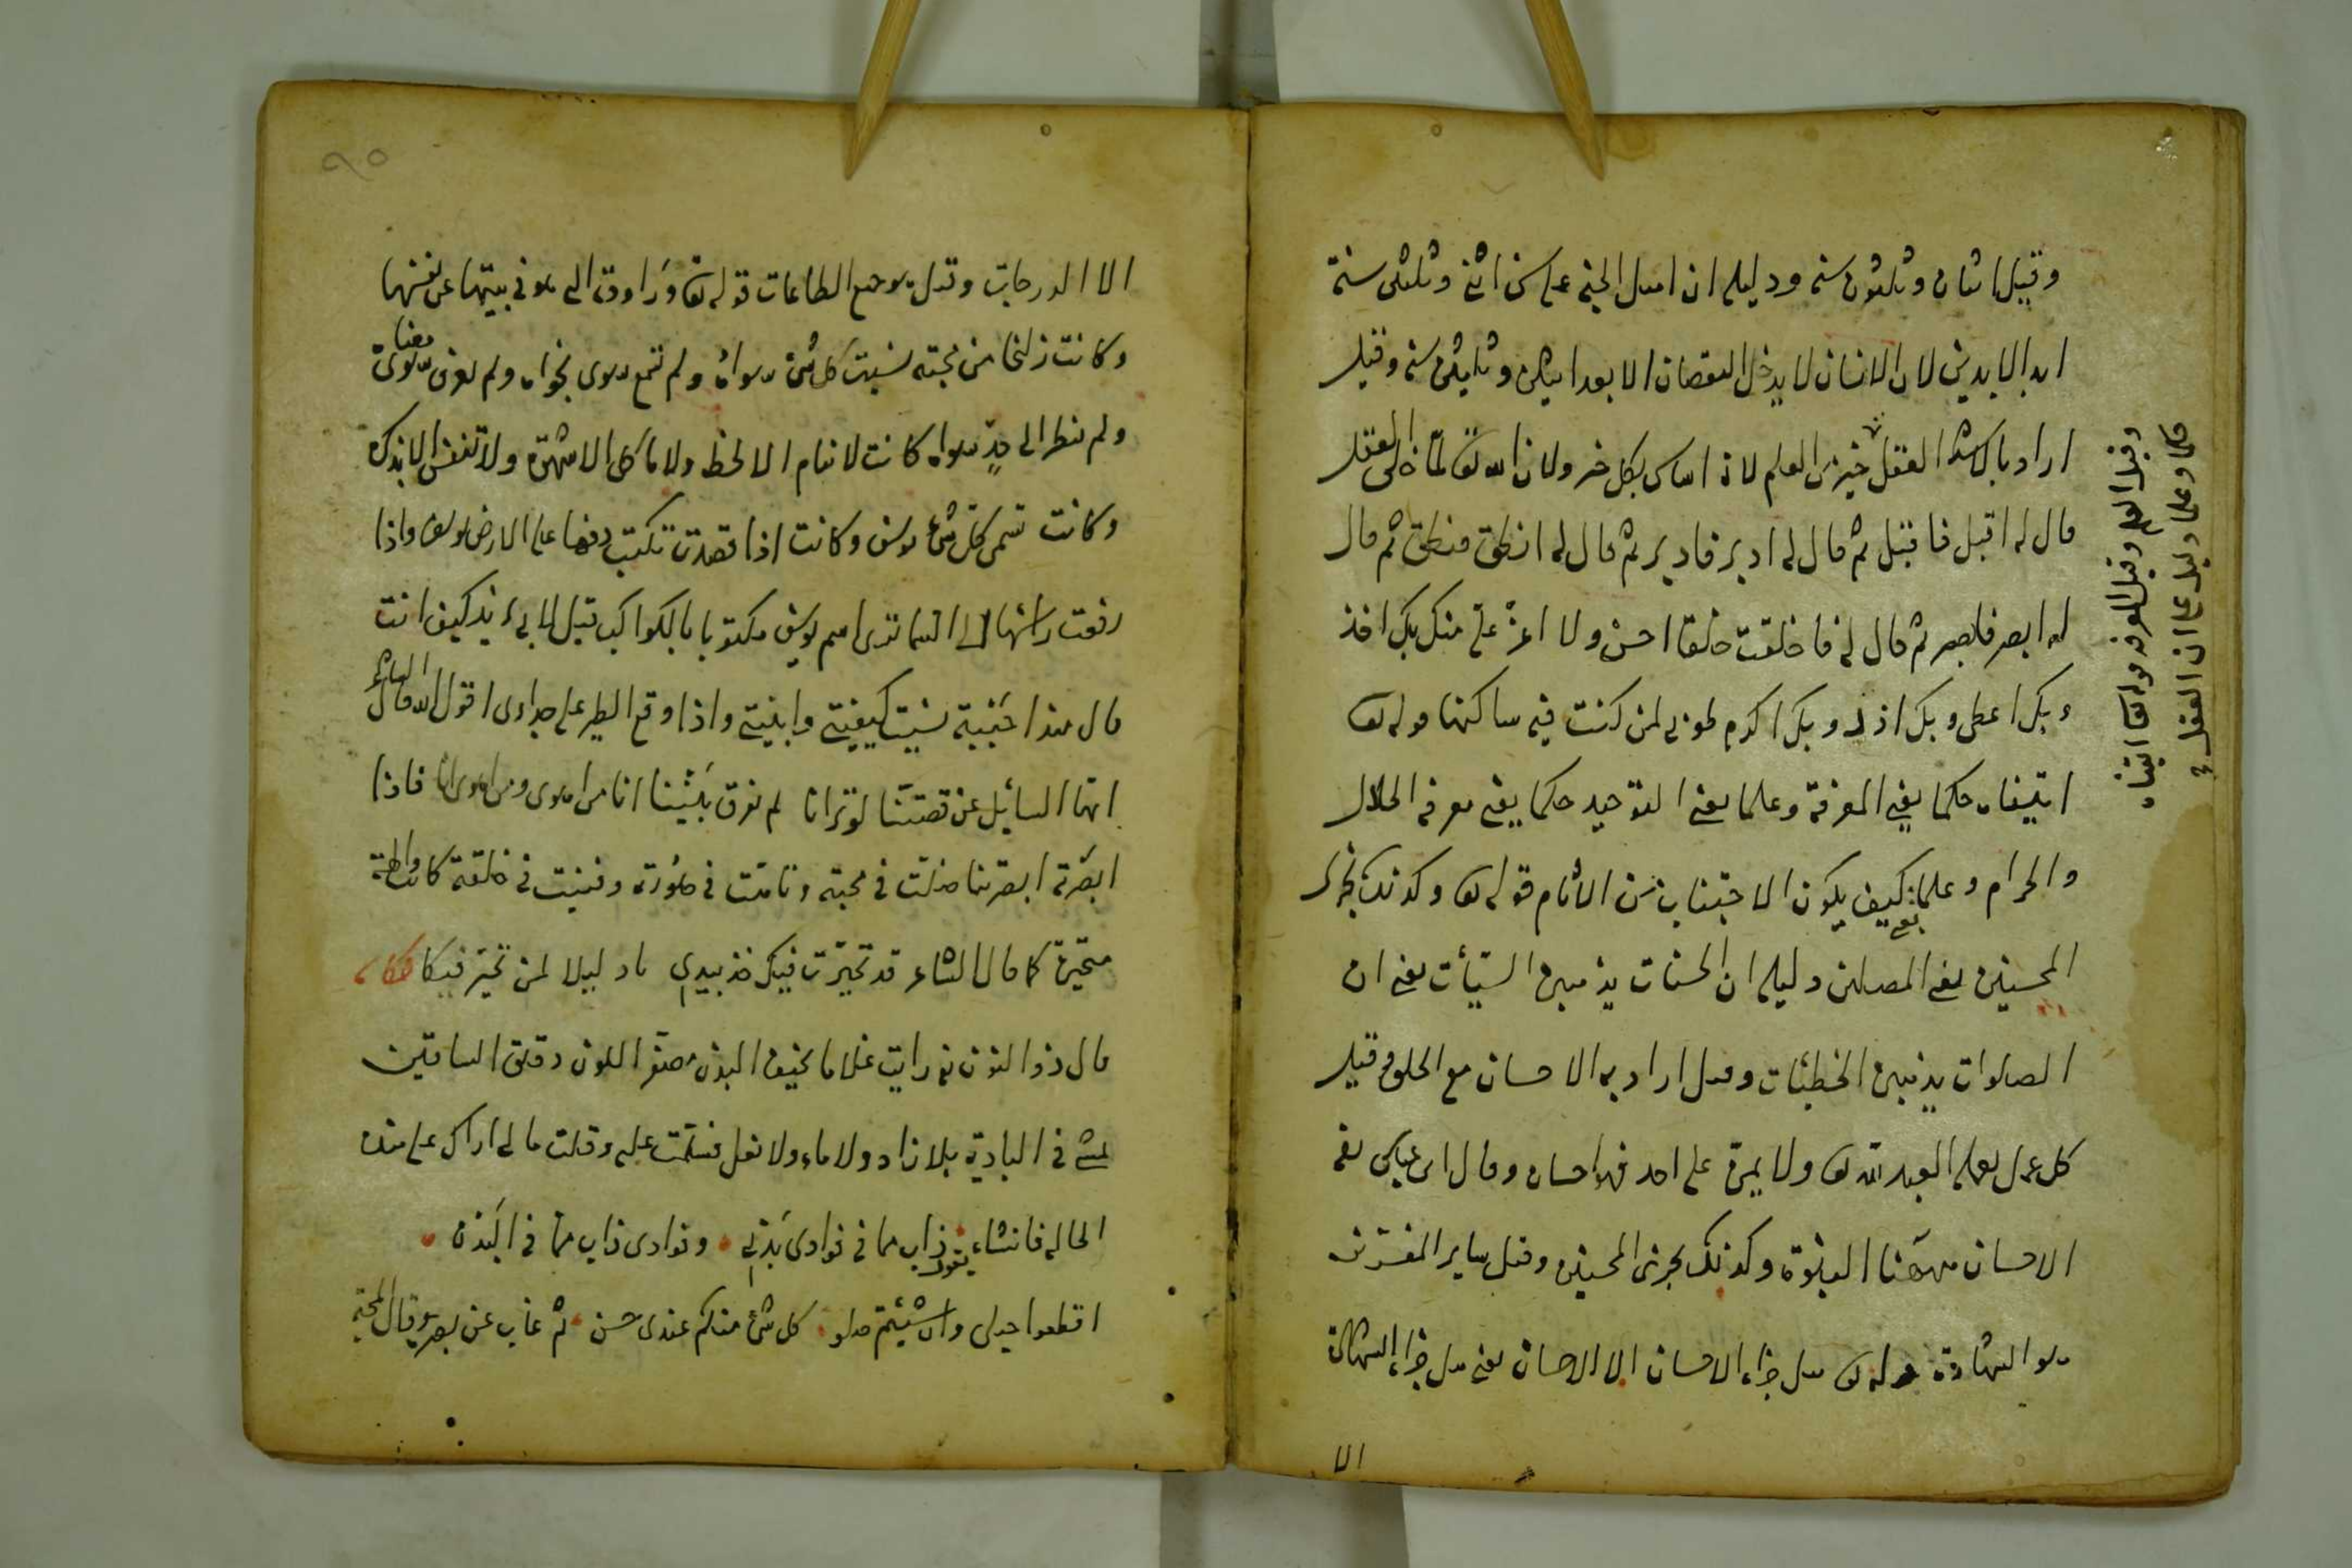 وقيل اثنان وثلثون سنه ودليله ان اهل الجنة على سن اثنى وثلثين سنة
ابد الابدين لان الانسان لا يدخل النقصان الا بعد اثنين وثلثين سنه وقيل
اراد بالاشد العقل خير من العلم لانه اساس لكل خير ولان الله تع لما خلق العقل
قال له اقبل فاقبل ثم قال له ادبر فادبر ثم قال له انطق فنطق ثم قال
له ابصر فابصر ثم قال له فما خلقت خلقا احسن ولا اعز على منك بك اخذ
وبك اعطى وبك اذل وبك اكرم طوبى لمن كنت فيه ساكنها قوله تع
اتيناه حكما يعنى المعرفة وعلما يعنى التوحيد حكما يعنى معرفة الحلال
والحرام وعلما يعنى كيف يكون الاجتناب من الاثام قوله تع وكذلك نجزى
المحسنين يعنى المصلين دليله ان الحسنات يذهبن السيأت يعنى ان
الصلوات يذهبن الخطيئات وقيل اراد به الاحسان مع الخلق وقيل
كل عمل يعمله العبد لله تع ولا يمن على احد فهو احسان وقال ابن عباس يعنى
الاحسان ههنا النبوة وكذلك نجزى المحسنين وقيل ساير المفسرين
هو الشهادة قوله تع هل جزاء الاحسان الا الاحسان يعنى هل جزاء الشهادة
الا
وقيل العلم وقيل المعرفة قوله تعا اتيناه
حكما وعلما دليل على ان العقل
٩٥
الا الدرجات وقيل هو جميع الطاعات قوله تع وراودته التى هو فى بيتها عن نفسها
وكانت زليخا من محبته نسيت كل شئ سواه ولم تسمع سوى نجواه ولم تعرف سوى معناه
ولم تنظر الى حد سواه كانت لا تنام الا لحظ ولا تأكل الا شهوة ولا تتنفس الا بذكره
وكانت تسمى كل شئ يوسف وكانت اذا قعدت تكتب دمها على الارض يوسف واذا
رفعت رأسها الى السماء ترى اسم يوسف مكتوبا بالكواكب قيل لابى يزيد كيف انت
قال منذ احببته نسيت كيفيتى وابنيتى واذا وقع الطير على جدارى اقول الله قال الشاعر
ايها السائل عن قصتنا لو ترانا لم تفرق بيننا انا من اهوى ومن اهوى انا فاذا
ابصرته ابصرتنا ضلت فى محبته وتاهت فى صورته وفنيت فى خلقته كانت والهة
متحيرة كما قال الشاعر قد تحيرت فيك خذ بيدى يا دليلا لمن تحير فيكا حكاية
قال ذو النون رايت غلاما نحيف البدن مصفر اللون دقيق الساقين
يمشى فى البادية بلا زاد ولا ماء ولا نعل فسلمت عليه وقلت ما لى اراك على هذه
الحالة فانشاء يقول ذاب مما فى فوادى بدنى وفوادى ذاب مما فى البدن
اقطعوا حبلى وان شئتم صلوا كل شئ منكم عندى حسن ثم غاب عن بصرى وقال المحبة